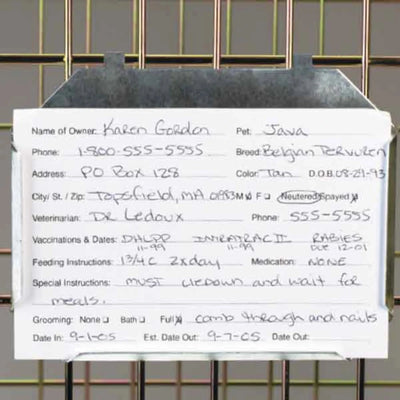 Name of Owner: Karen Gordon Pet: Java
Phone: 1-800-555-5555 Breed: Belgian Tervuren
Address: PO Box 128 Color: Tan D.O.B. 08-29-93
City/ St. / Zip: Topsfield, MA 01983 M F Neutered Spayed
Veterinarian: DR Ledoux Phone: 555-5555
Vaccinations & Dates: DHLPP INTRATRAC II RABIES
11-99 11-99 DUE 12-01
Feeding Instructions: 1 3/4 C 2x day Medication: NONE
Special Instructions: must lie down and wait for
meals.
Grooming: None Bath Full comb through and nails
Date In: 9-1-05 Est. Date Out: 9-7-05 Date Out: